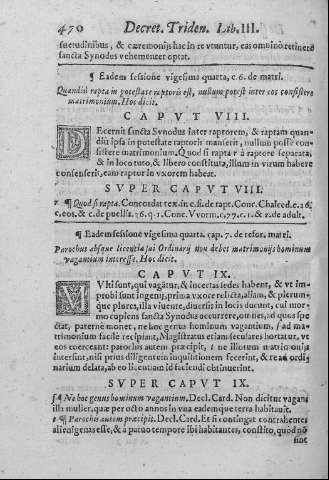 470 Decret. Triden. Lib. III.
suetudinibus, & cæremonijs hac in re vtuntur, eas omninò retineri
sancta Synodus vehementer optat.
¶ Eadem sessione vigesima quarta, c. 6. de matri.
Quandiù rapta in potestate raptoris est, nullum potest inter eos consistere
matrimonium. Hoc dicit.
CAPVT VIII.
DEcernit sancta Synodus inter raptorem, & raptam quan-
diù ipsa in potestate raptoris manserit, nullum posse con-
sistere matrimonium. Quod si rapta à raptore separata,
& in loco tuto, & libero constituta, illum in virum habere
consenserit, eam raptor in vxorem habeat.
SVPER CAPVT VIII.
¶ Quod si rapta. Concordat tex. in c. fi. de rapt. Conc. Chalced. c. 26.
c. eos. & c. de puellis. 26. q. 1. Conc. Vvorm. c. 77. c. 1. & 2. de adult.
¶ Eadem sessione vigesima quarta. cap. 7. de refor. matri.
Parochus absque licentia sui Ordinarij non debet matrimonijs hominum
vagantium interesse. Hoc dicit.
CAPVT IX.
MVlti sunt, qui vagātur, & incertas sedes habent, & vt im-
probi sunt ingenij, prima vxore relicta, aliam, & plerum-
que plures, illa viuente, diuersis in locis ducunt, cui mor-
mo cupiens sancta Synodus occurrere, omnes, ad quos spe
ctat, paternè monet, ne hoc genus hominum vagantium, ad ma-
trimonium facilè recipiant, Magistratus etiam seculares hortatur, vt
eos coerceant: parochis autem præcipit, ne illorum matrimonijs
intersint, nisi prius diligentem inquisitionem fecerint, & re ad ordi
narium delata, ab eo licentiam id faciendi obtinuerint.
SVPER CAPVT IX.
¶ Ne hoc genus hominum vagantium. Decl. Card. Non dicitur vagans
illa mulier, quæ per octo annos in vna eademque terra habitauit.
¶ Parochis autem præcipit. Decl. Card. Et si contingat contrahentes
alienigenas esse, & à paruo tempore ibi habitantes, constito, quòd nō
sint